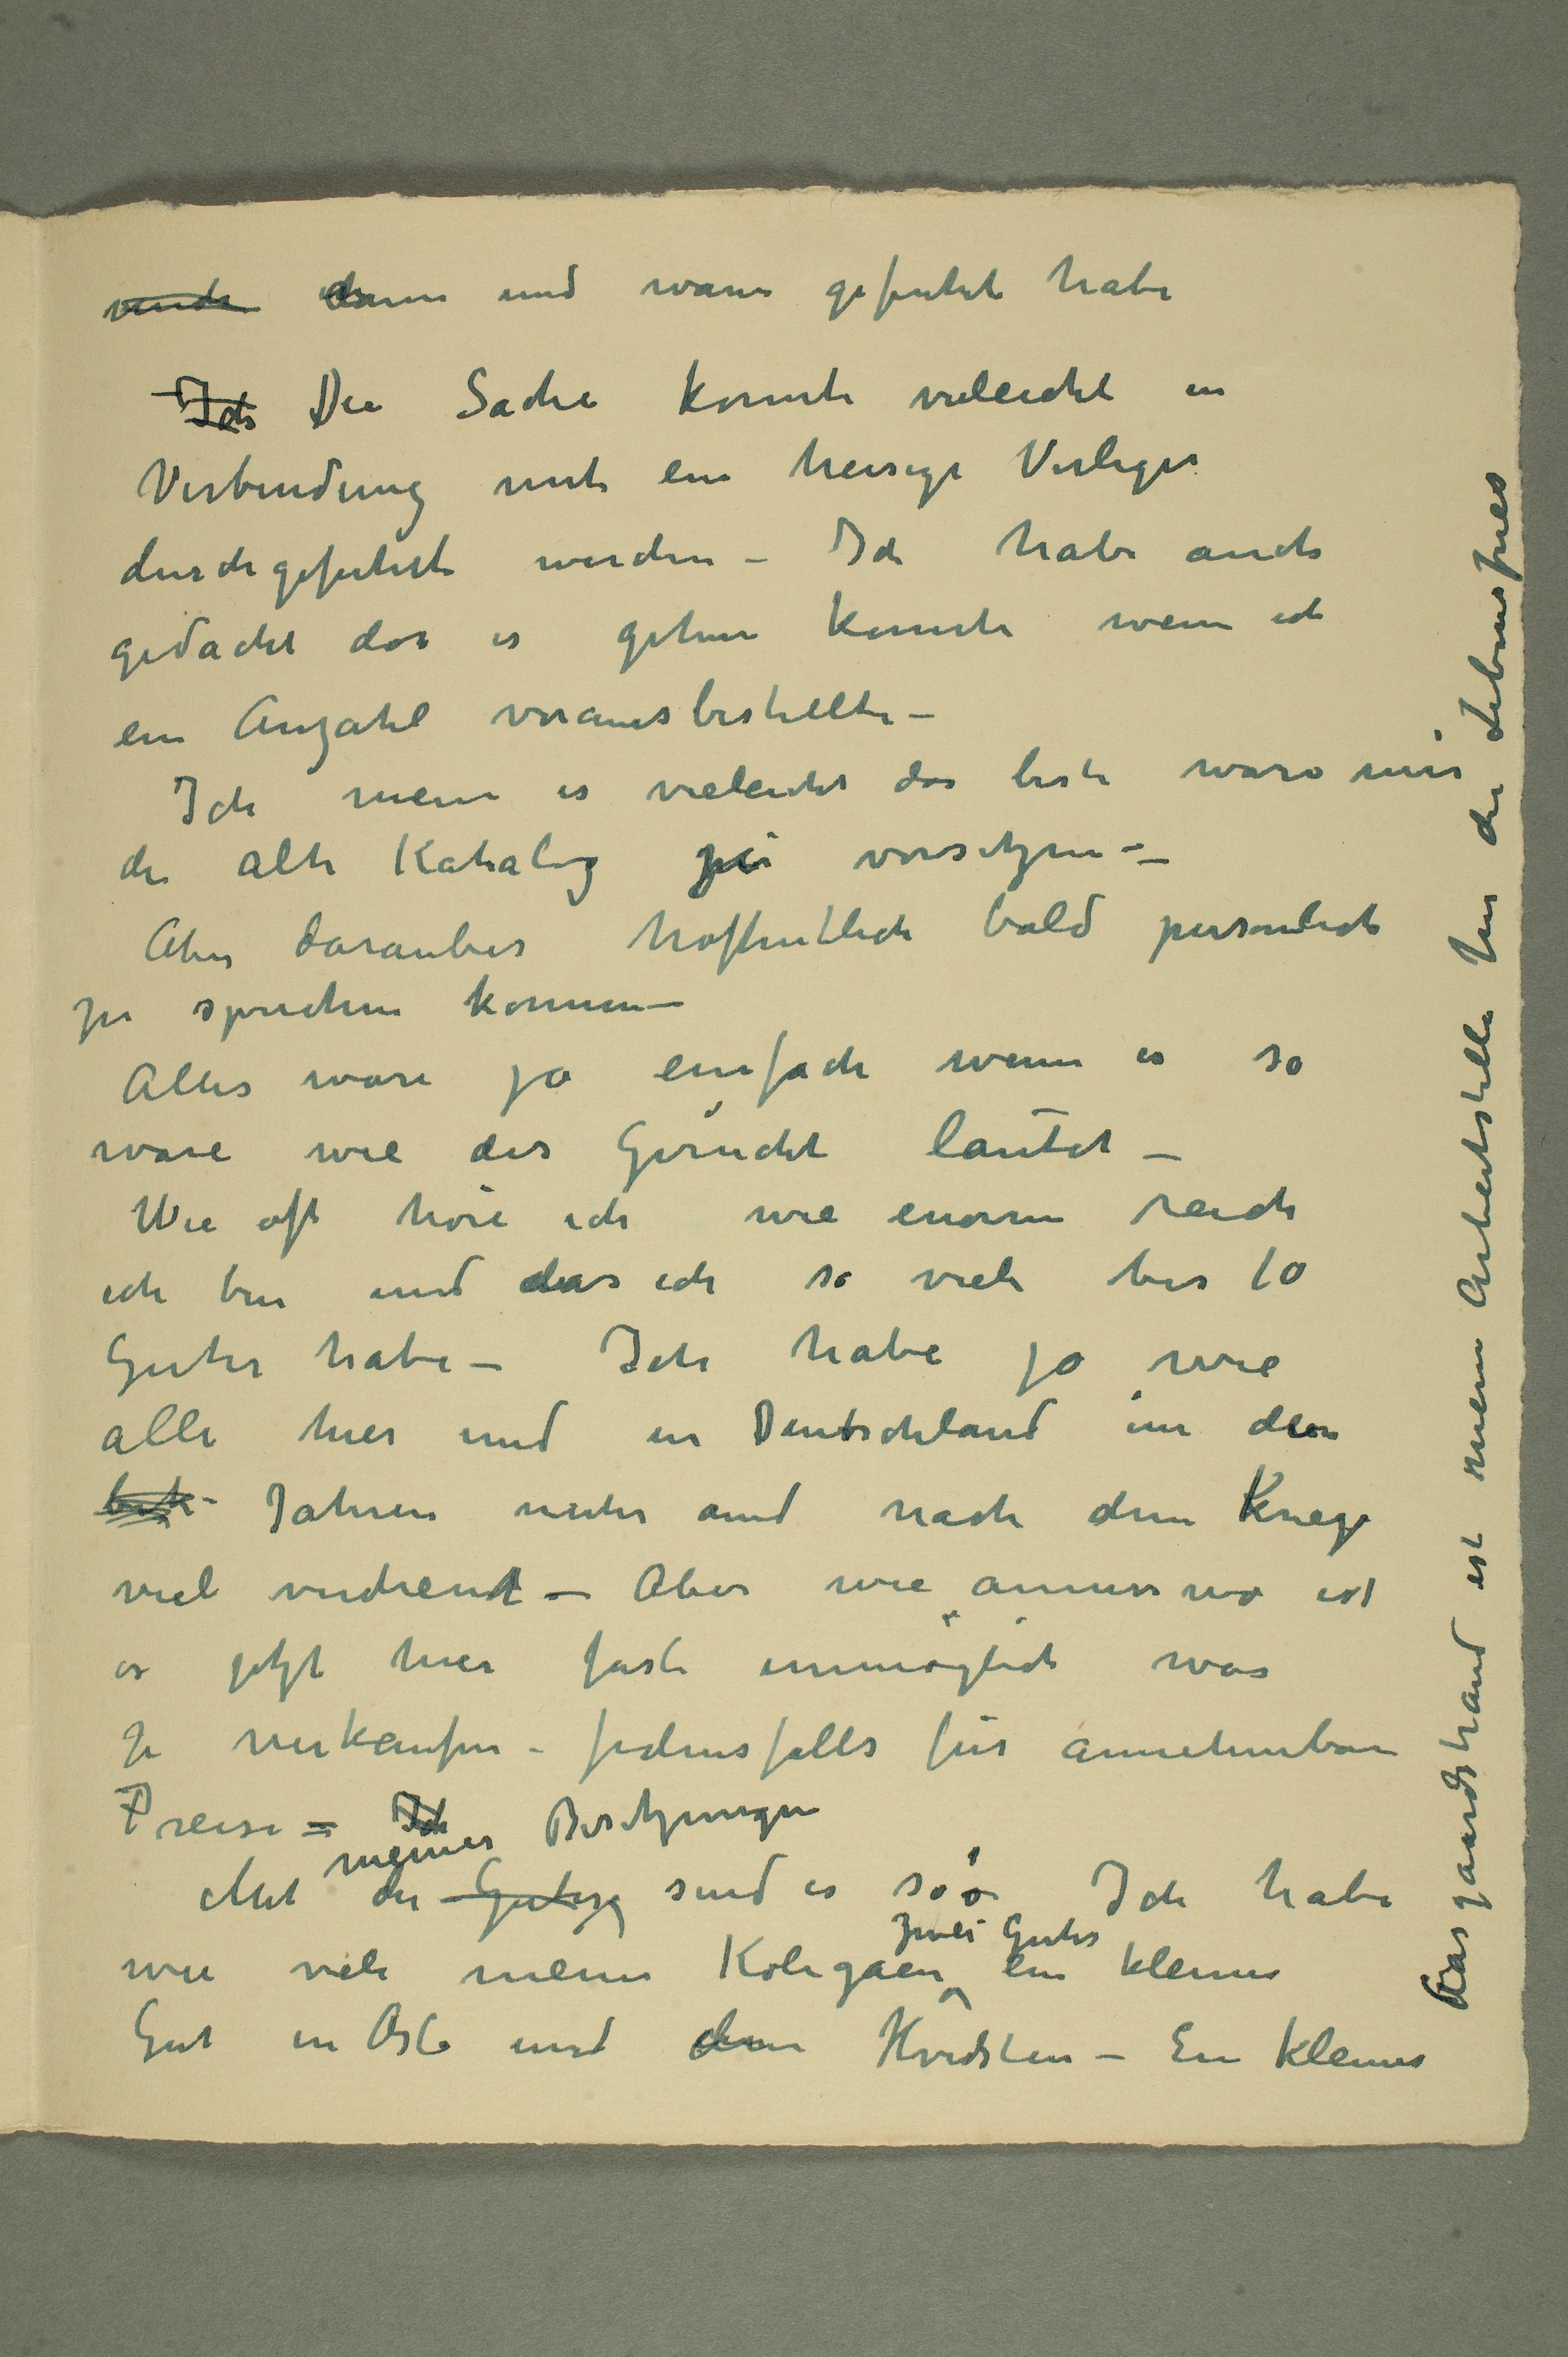 dann und wann gefürtet habe
Ich Die Sache konnte vieleicht in
Verbindung mit ein hiesige Verleger
durchgefuhrt werden – Ich habe auch
gedacht das es gehen konnte wenn ich
ein Anzahl vorausbestellte –
Ich meine es vieleicht das beste ware nur
die alte Katalog zu vorsetzen –
Aber darauber hoffentlich bald personlich
zu sprechen konnen –
Alles ware ja einfach wenn es so
ware wie das Gerücht lautet –
Wie oft höre ich wie enorm reich
ich bin und das ich so viele bis 10
Guter habe – Ich habe ja wie
alle hier und in Deutschland in den
Jahren unter und nach dem Krieg
viel verdient – Aber wie anderswo ist
es jetzt hier fast unmöglich was
zu verkaufen – jedensfalls für annehmbare
Preise – Ich
meiner Besitzungen
Mit die Guter sind es so: Ich habe
zwei Guter
wie viele meine Kolegaen ein kleines
Gut in Oslo und dann Hvidsten – Ein kleines
Aasgaardstrand ist meine Arbeitstelle für die Lebensfries